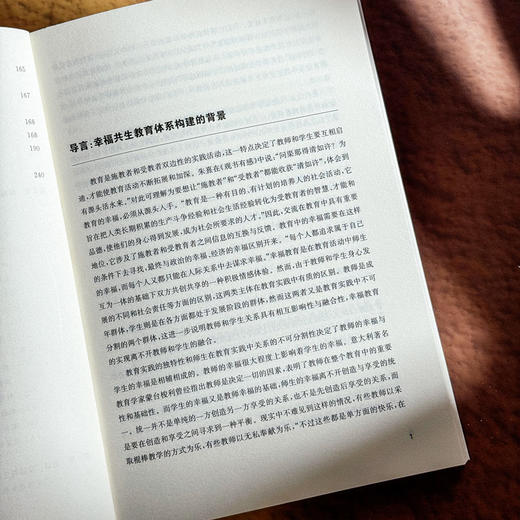 165
167
168
168
190
240
导言：幸福共生教育体系构建的背景
教育是施教者和受教者双边性的实践活动，这一特点决定了教师和学生要互相启
道，才能使教育活动不断拓展和加深。朱熹在《观书有感》中说，“问渠那得清如许？为
有源头活水来。”对此可理解为要想让“施教者”和“受教者”都能收获“清如许”，体会到
教育的幸福，必须从源头入手。“教育是一种有目的、有计划的培养人的社会活动，它
旨在把人类长期积累的生产斗争经验和社会生活经验转化为受教育者的智慧、才能和
品德，使他们的身心得到发展，成为社会所要求的人才。”因此，交流在教育中具有重要
地位，它涉及了施教者和受教育者之间信息的互换与反馈。教育中的幸福需要在这样
的条件下去寻找，最终与政治的幸福、经济的幸福区别开来。“每个人都追求属于自己
的幸福，而每个人又都只能在人际关系中去谋求幸福。”幸福教育是在教育活动中师生
互为一体的基础下双方共创共享的一种积极情感体验。然而，由于教师和学生身心发
展的不同和社会责任等方面的区别，这两类主体在教育实践中有质的区别。教师是成
年群体，学生则是在各方面都处于发展阶段的群体，然而这两者又是教育实践中不可
分割的两个群体，这进一步说明教师和学生关系具有相互影响性与融合性，幸福教育
的实现离不开教师和学生的融合。
教育实践的独特性和师生在教育实践中关系的不可分割性决定了教师的幸福与
学生的幸福是相辅相成的。教师的幸福很大程度上影响着学生的幸福。意大利著名
教育学家蒙台梭利曾经指出教师是决定一切的因素，表明了教师在整个教育中的重要
性和基础性。而学生的幸福又是教师幸福的基础，师生的幸福离不开创造与享受的统
一。统一并不是单纯的一方创造另一方享受的关系，也不是先创造后享受的关系，而
是要在创造和享受之间寻求到一种平衡。现实中不难见到这样的情况，有些教师以采
取棍棒教学的方式为乐，有些教师以无私奉献为乐，“不过这些都是单方面的快乐，在
1